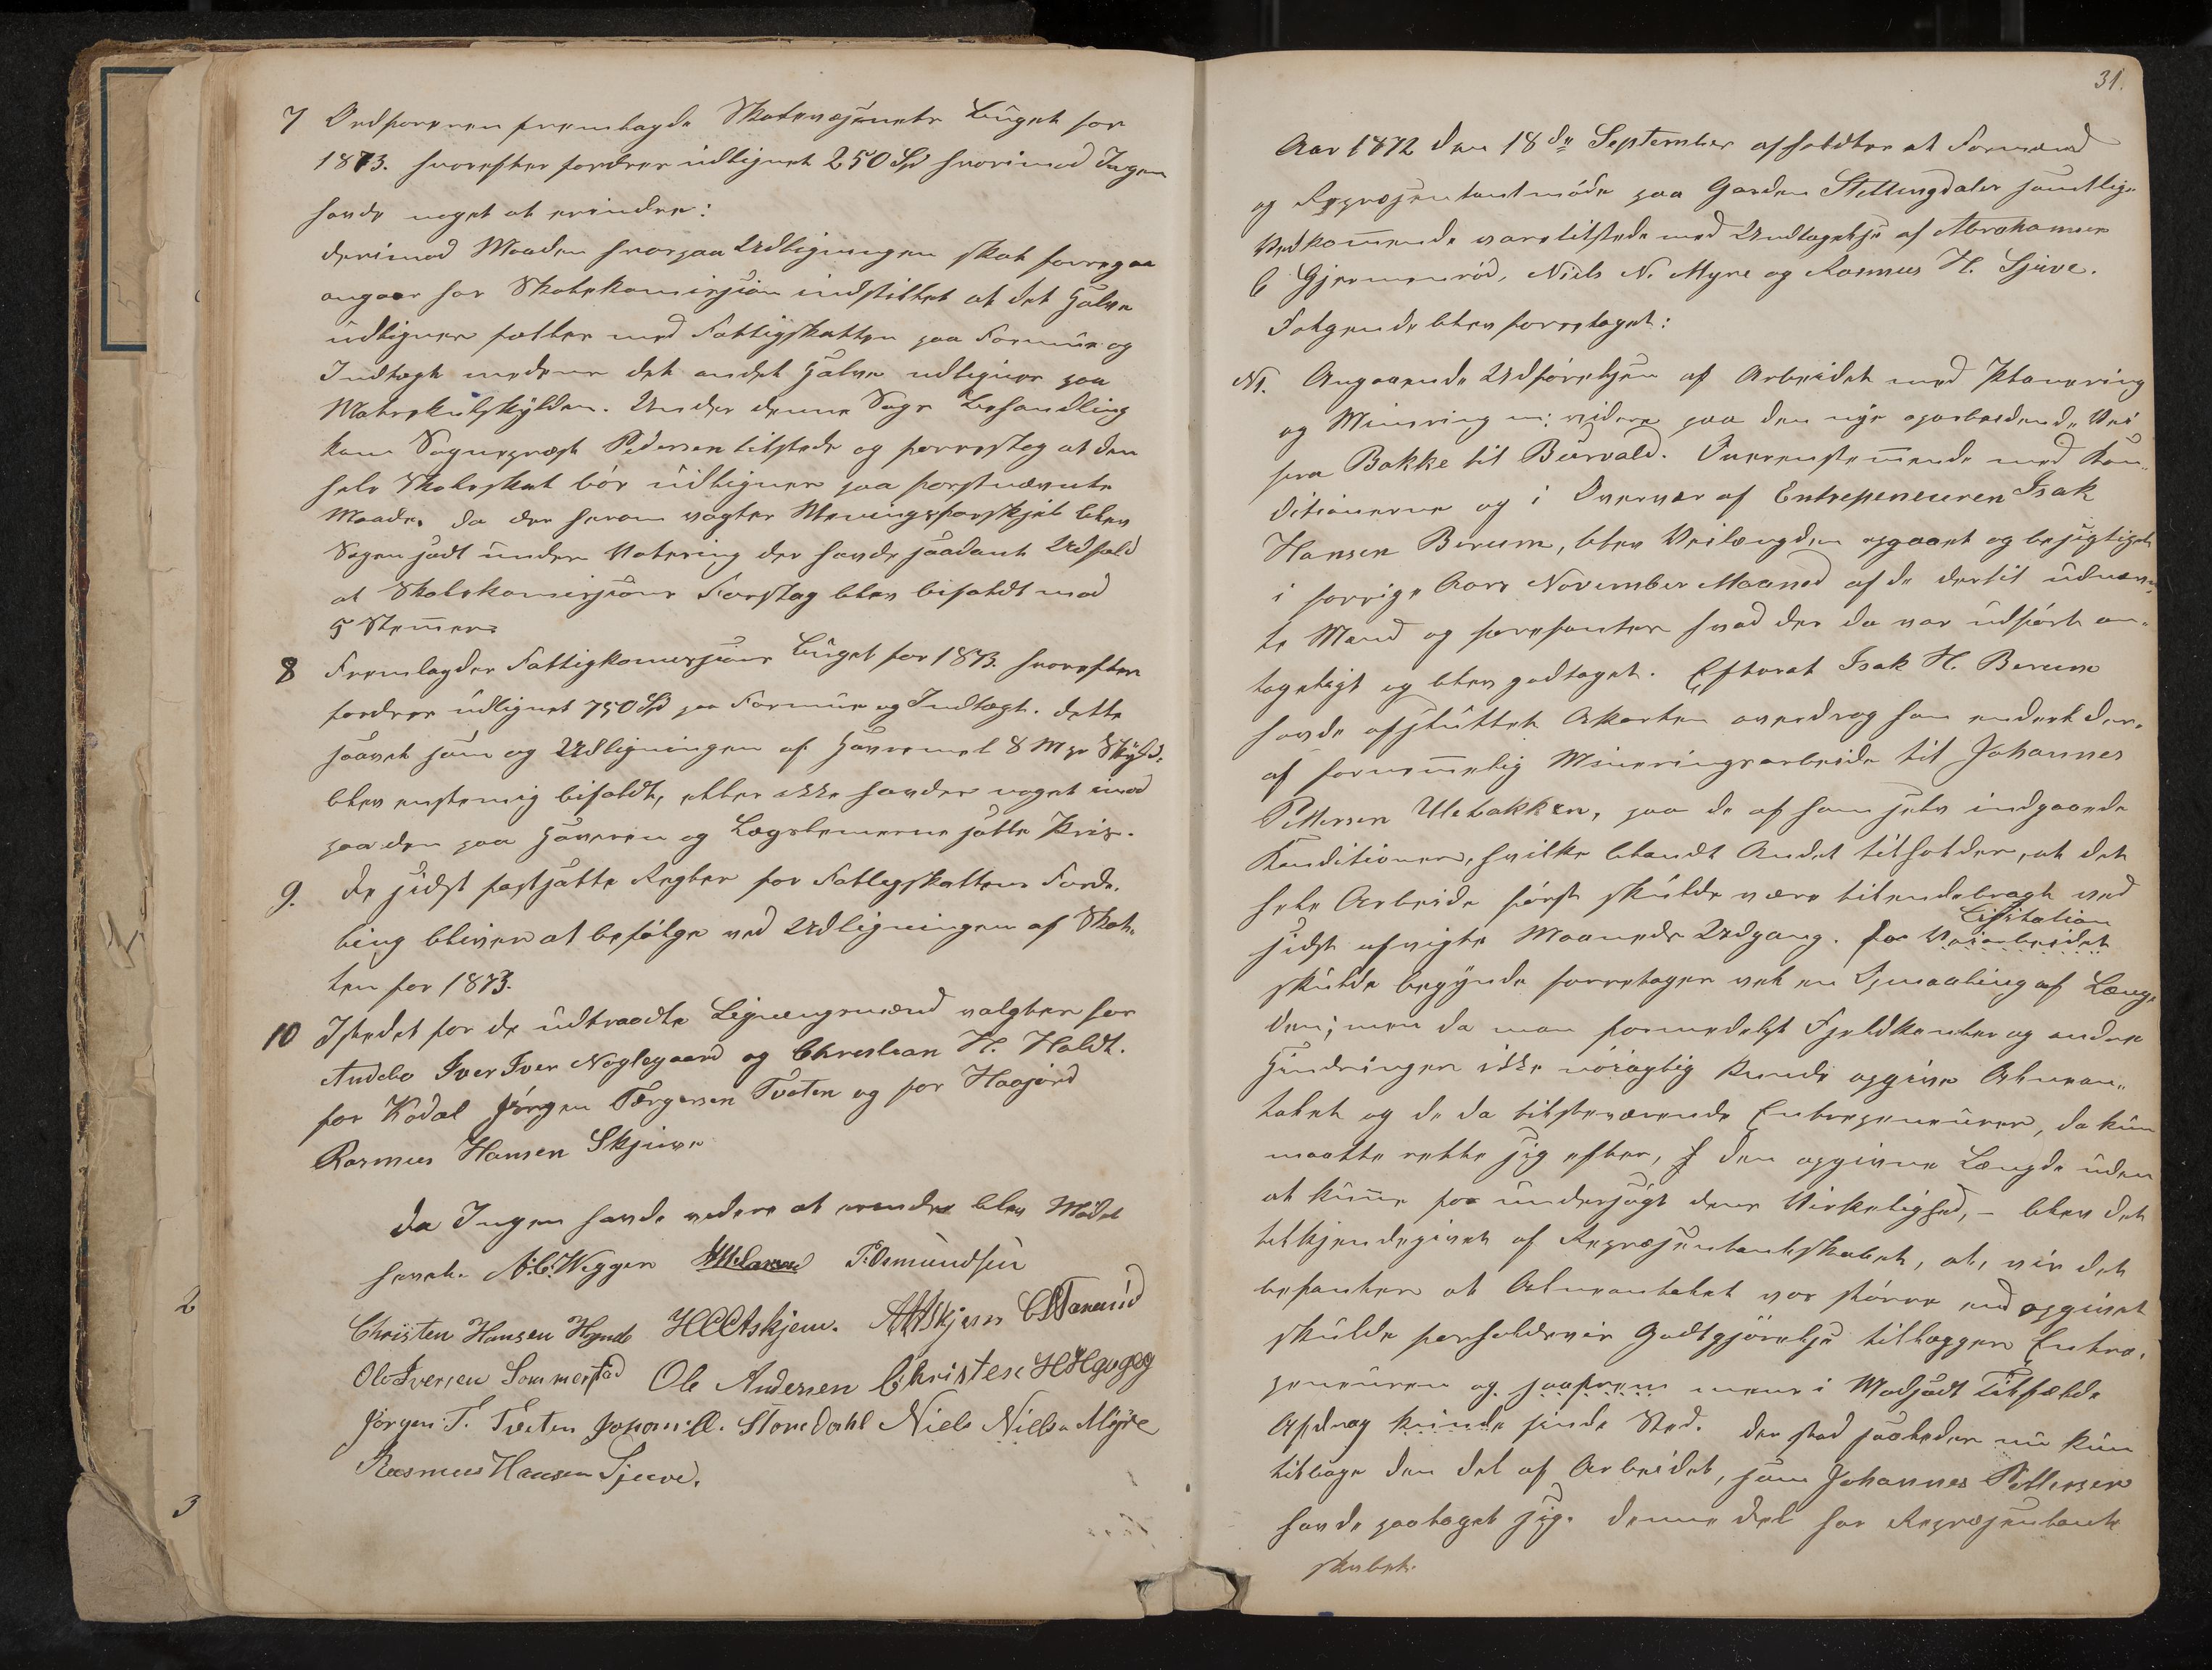 7 Ordføreren fremlagde Skolevæsenets Buget for
1873. hvorefter fordres udlignet 250 Spd hvorimod Ingen
havde noget at erindre:
derimod Maaden hvorpaa Udligningen skal foregaa
angaar har Skolekomissjon indstillet at det halve
udlignes fælles med Fattigskatten paa Formue og
Indtægt medens det andet halve udlignes paa
Matrikulskylden. Under denne Sags Behandling
kom Sogneprest Pedersen tilstede og foreslog at den
hele Skoleskat bør udlignes paa førstnævnte
Maade. Da der herom vagtes Meningsforskjel blev
Sagen sadt under Votering der havde saadant Udfald
at Skolekomisjons Forslag blev bifaldt med
5 Stemmer.
8 Fremlagdes Fattigkomisjons Buget for 1873. hvorefter
fordres udlignet 750 Spd paa Formue og Indtægt. dette
saavel som og Udligningen af Havremel 8 M pr Skyld.
blev enstemig bifaldt, eller ikke havdes noget imod
paa den paa Havren og Lægslemerne satte Pris.
9. De sidst fastsatte Regler for Fattigskattens Forde-
ling bliver at befølge ved Udligningen af Skat-
ten for 1873.
10 Istedet for de udtraadte Ligningsmænd valgtes for
Andebo Iver Iver Nøglegaard og Christian H. Holdt.
for Kodal Jørgen Torgersen Tveten og for Haajord
Rasmus Hansen Skjuve
Da Ingen havde videre at erindre blev Mødet
hævet. N.C. Wegger P. Osmundsen
Christen Hansen Hynde H C Askjem. A A Skjem
Ole Iversen Sommerstad Ole Andersen Christen H Haugberg
Jørgen T. Tveten Johan A. Stordahl Niels Nielsen Myre
Rasmus Hansen Sjuve.
31.
Aar 1872 den 18de September afholdtes et Formænd
og Repræsentantmøde paa Garden Stellingdalen samtlige
Vedkommende vare tilstede med Undtagelse af Abrahamsen
C Gjermenrød, Niels N. Myre og Rasmus H. Sjuve.
Følgende blev foretaget:
N1. Angaaende Udførelsen af Arbeidet med Planering
og Minering m: videre paa den nye oparbeidende Vei
fra Bakke til Buvald. Overenstemmende med Kon-
ditionerne og i Overvær af Entrepeneuren Isak
Hansen Berum, blev Veilængden opgaaet og besigtiget
i forrige Aars November Maaned af de dertil udnævn-
te Mænd og forefantes hvad der da var udført an-
tageligt og blev godtaget. Efterat Isak H. Berum
havde afsluttet Akorten overdrog han endeel der-
af fornemmelig Mineringsarbeide til Johannes
Pettersen Ulebakken, paa de af ham selv indgaaede
Konditioner, hvilke blandt Andet tilholder, at det
hele Arbeide først skulde være tilendebragt ved
sidst afvigte Maaneds Udgang. før Veiarbeidet
Lisitation
skulde begynde foretages vel en Opmaaling af Læng-
den; men da man formedelst Fjeldkanter og andre
Hindringer ikke nøiagtig kunde opgive Alnean-
talet og de da tilstæværende Entrepeneurer, da kun
maatte rette sig efter, den opgivne Længde uden
at kunne faa undersøgt dens Virkelighed, - blev det
tilkjendegivet af Repræsentantskabet, at, vis det
befantes at Alneantalet var større end opgivet
skulde forholdsvis Godtgjørelse tillægges Entre-
peneuren og saafrem mens i Modsadt Tilfælde
Afdrag kunde finde Sted. Der stod saaledes nu kun
tilbage den del af Arbeidet, som Johannes Pettersen
havde paataget sig. Denne del har Repræsentant
skabet.